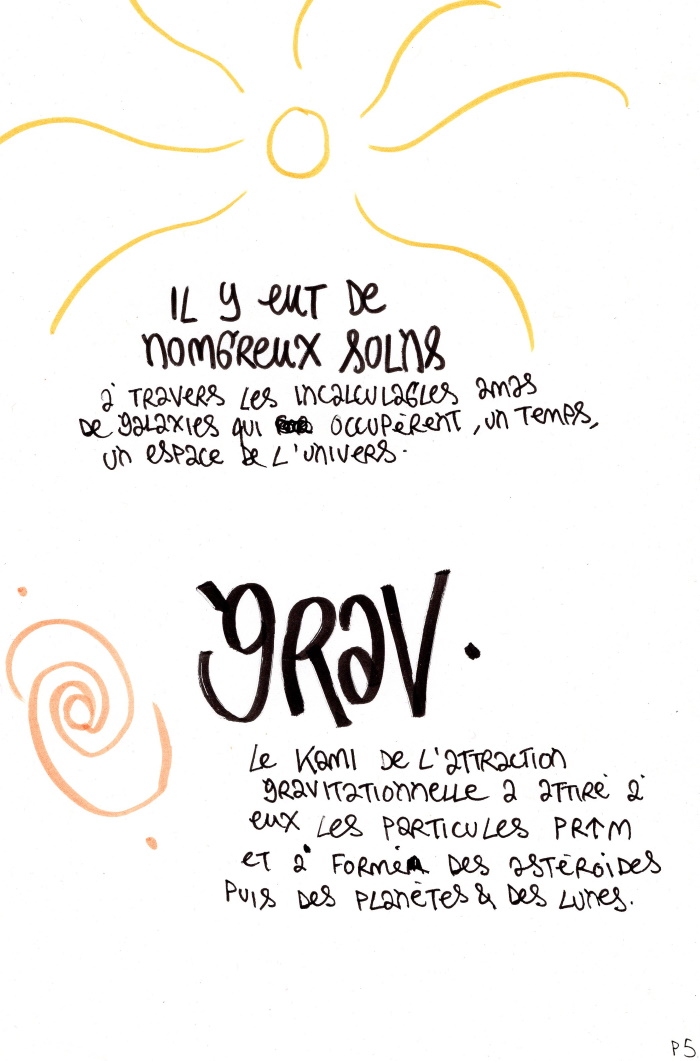 IL Y EUT DE
NOMBREUX SOLNS
À TRAVERS LES INCALCULABLES AMAS
DE GALAXIES QUI OCCUPÈRENT, UN TEMPS,
UN ESPACE DE L'UNIVERS.
GRAV.
LE KAMI DE L'ATTRACTION
GRAVITATIONNELLE A ATTIRÉ À
EUX LES PARTICULES PR↑M
ET À FORMÉ DES ASTÉROÏDES
PUIS DES PLANÈTES & DES LUNES.
P5